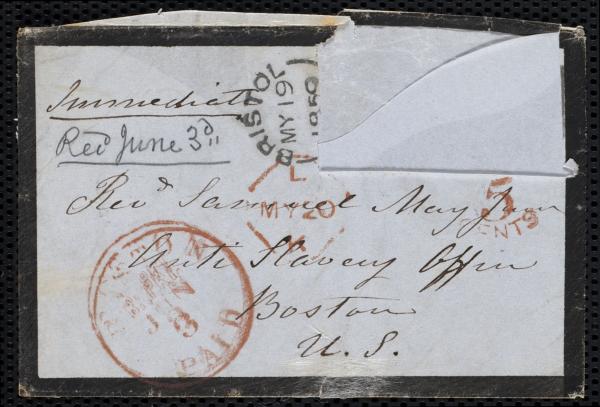 Immediate
Recd June 3d
BRISTOL
MY 19
185
L
MY 20
5
CENTS
Revd Samuel May Junr
Anti Slavery Office
Boston
U. S.
BOSTON
JUN
3
PAID